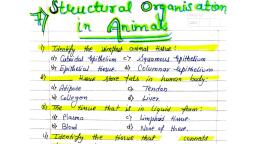 7) Structural Organisation
in Animals
1) Identify the simplest animal tissue:
a) Cuboidal Epithelium c) Squamous Epithelium
b) Epithelial tissue d) Columnar Epithelium
2) tissue store fats in human body:
a) Adipose c) Tendon
b) Collagen d) Liver
3) The tissue that is in liquid form:
a) Plasma c) Lymphoid tissue
b) Blood d) None of these.
4) Identify the tissue that connects